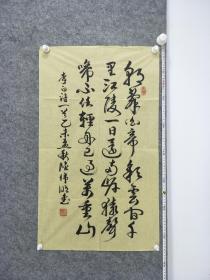 朝辞白帝彩雲間千
里江陵一日還兩岸猿聲
啼不住輕舟已過萬重山
李白詩一首乙未